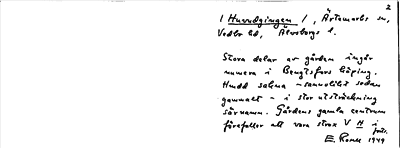 2
/ Huvudgingen /, Ärtemarks sn,
Vedbo hd, Älvsborgs l.
Stora delar av gården ingår
numera i Bengtsfors köping.
Hudd saknas - sannolikt sedan
gammalt - i stor utsträckning
särnamn. Gårdens gamla centrum
förefaller att vara strax V H i
E. Rome 1949